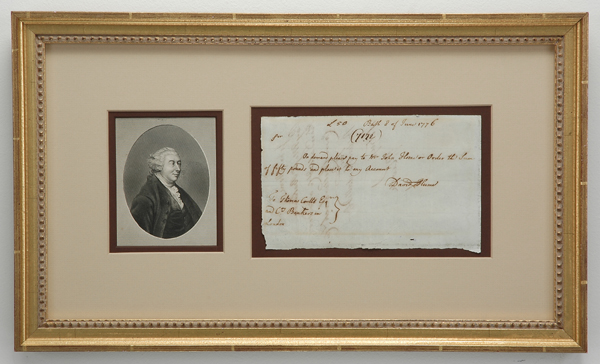 £50 Bath 8 of June 1776
(7171)
On demand please pay to Mr John Home or Order the Sum
of fifty pounds and place it to my Account
David Hume
To Thomas Coutts Esq
and Co Bankers in
London